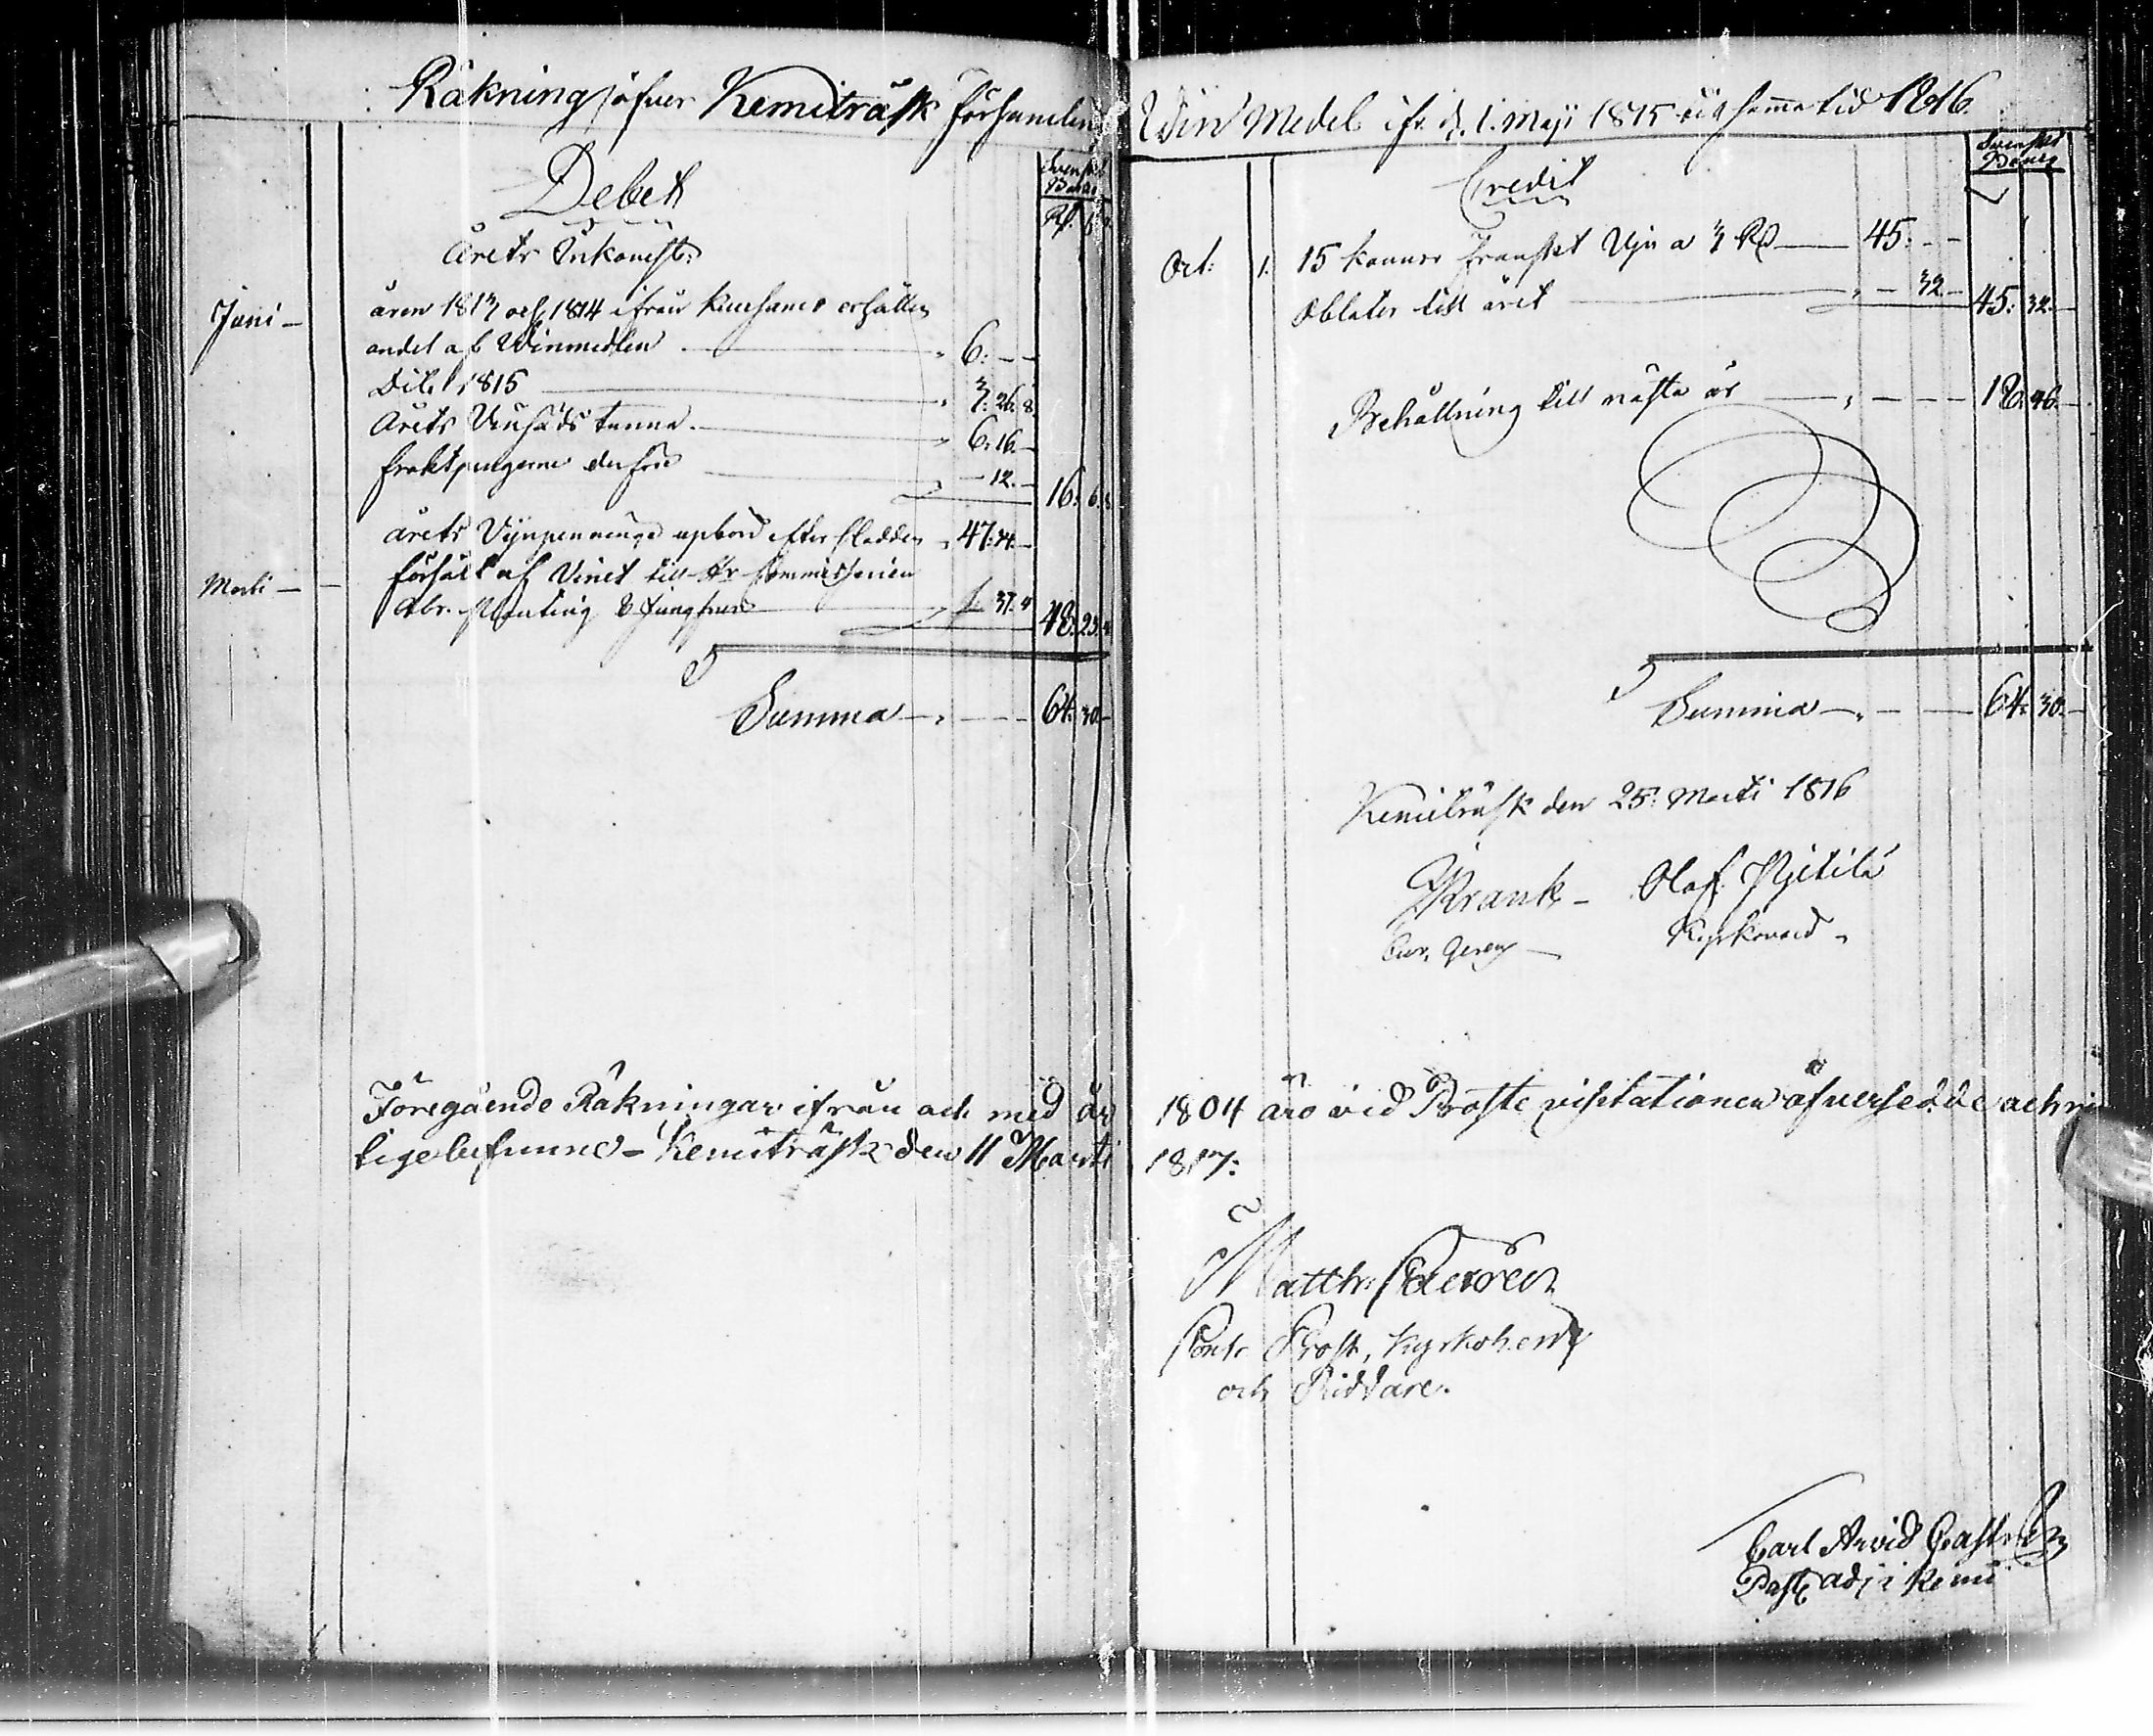 Räkning öfver Kemiträsk församlin
Debet
Svensk
Banco
Rd. s. r.
Årets Inkomst:
Juni - åren 1813 och 1814 ifrån Kuusamo erhållen
andel af Winmedlen - 6. - -
Dito 1815 - 3. 26. 8.
Årets Vinsäds tunna. - 6. 16. -
fraktpengarne derföre - 12. - 16. 6. 8
årets Vijnpenninge upbörd efter Sladden 47. 34. -
Marti - försålt af Vinet till Hr Commissarien
Abr. Planting & Jungfrun - 1. 37. 4 48. 23. 4
Summa - 64. 30 -
Föregående Räkningar ifrån och med år
tige befunne - Kemiträsk den 11 Marti
Win Medel ifr. d. 1. Maji 1815 til samma tid 1816.
Credit
Svenskt
Banco
Oct: 1. 15 kannor franskt Vijn a 3 Rd - 45: - -
Oblater till året - 32 - 45: 32. -
Behållning till nästa år - 18. 46. -
Summa - 64. 30. -
Kemiträsk den 25: Marti 1816
Krank - Olof Pijetilä
Cur. gerens - Kyrkovärd
1804 äro vid Proste visitationen öfversedde och rig
1817:
Matth: Castrén
Cont. Prost, Kyrkoherde
och Riddare.
Carl Arvid Castrén
Past. adj i Kemi